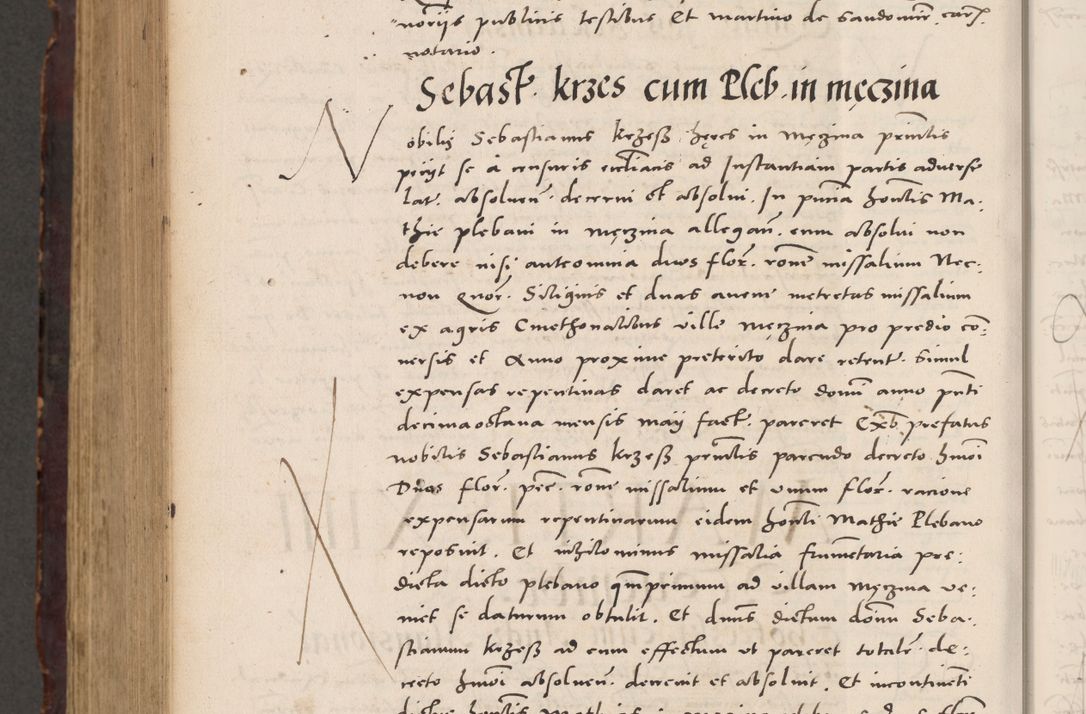 norijs publicis testibus Et martino de Sandomir. earz.
notario.
Sebast. krzes cum Pleb. in męczina
Nobilis Sebastianus krzesß hęres in męczina prńtis
petijt se à censuris eccliacis ad Instantiam partis adverse
lat. absolvenď. decerni et absolvi. In pńcia honlis Ma-
thie plebani in męczina allegań. eum absolvi non
debere nisj anteomnia duos flor. rone missalium Nec-
non Siliginis et duas avene metretas missalium
ex agris Cmethonalibus ville męczina pro predio con-
versis et Anno proxime preterito dare retent. Simul
expensas repentinas daret ac decreto domi anno pnti
decimaoctava mensis maij fact. pareret Exb prefatus
nobilis Sebastianus krzesß prńtis parendo decreto hmoi
Duos flor. pec. rone missalium et unum flor. racione
expensarum repentinarum eidem honli Mathie Plebano
reposuit. Et nihilominus missalia frumetaria pre-
dicta dicto plebano qmprimum ad villam męczina ve-
niet se daturum obtulit. Et dnus dictum donu Seba-
stianum krzesß ad eum effectum ut pareret totalr. de-
creto hmoi absolvenď. decrevit et absolvit. Et incontineti
dictus honlis Mathias in męczina